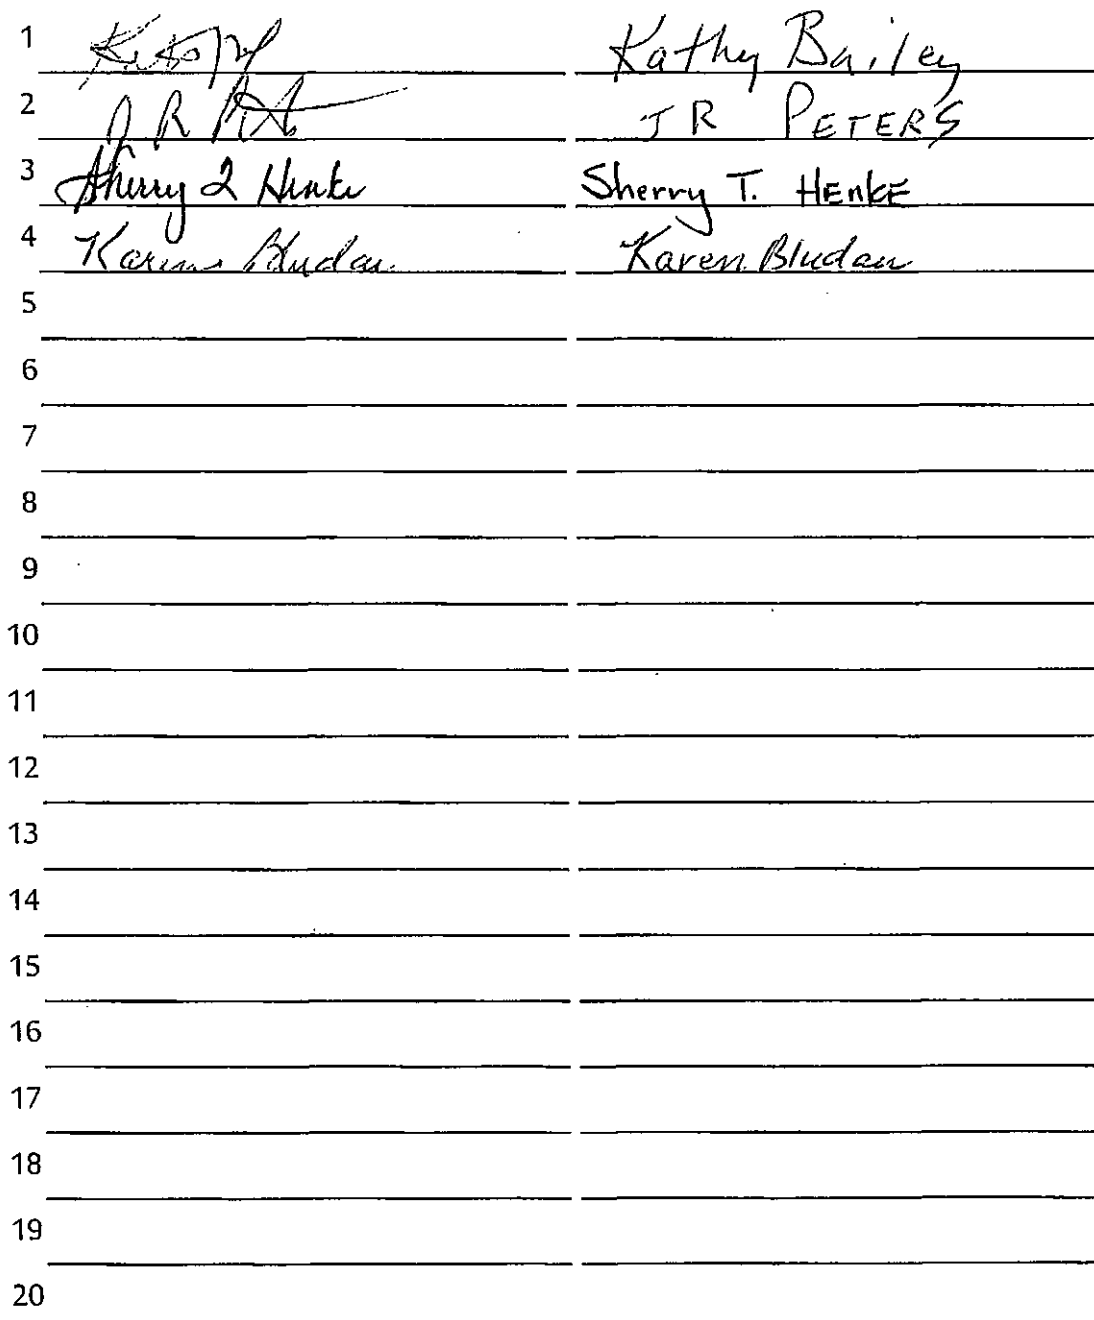 1 Kathy Bailey
2 J R J R PETERS
3 Sherry T Henke Sherry T. HENKE
4 Karen Bludau Karen Bludau
5
6
7
8
9
10
11
12
13
14
15
16
17
18
19
20